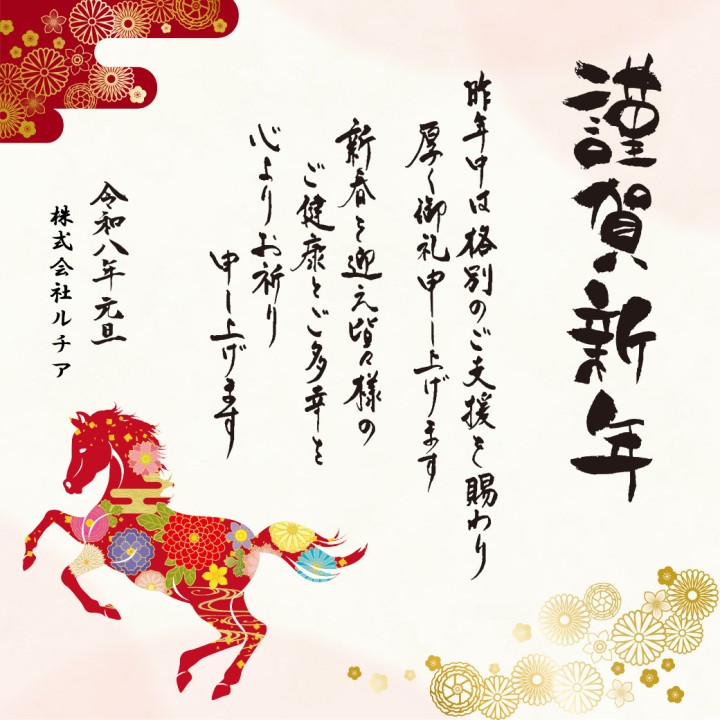 謹賀新年
昨年中は格別のご支援を賜わり
厚く御礼申し上げます
新春を迎え皆々様の
ご健康とご多幸を
心よりお祈り
申し上げます
令和八年元旦
株式会社ルチア